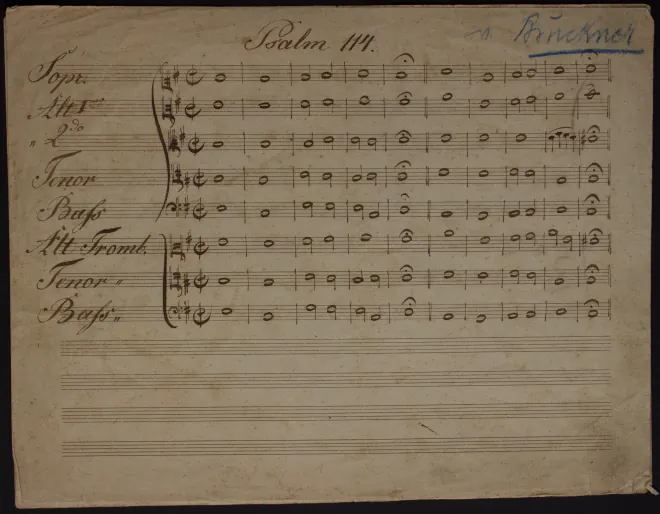 Psalm 114.
v. Bruckner
Sopr.
Alt 1mo
" 2do
Tenor
Bass
Alt Tromb.
Tenor "
Bass "